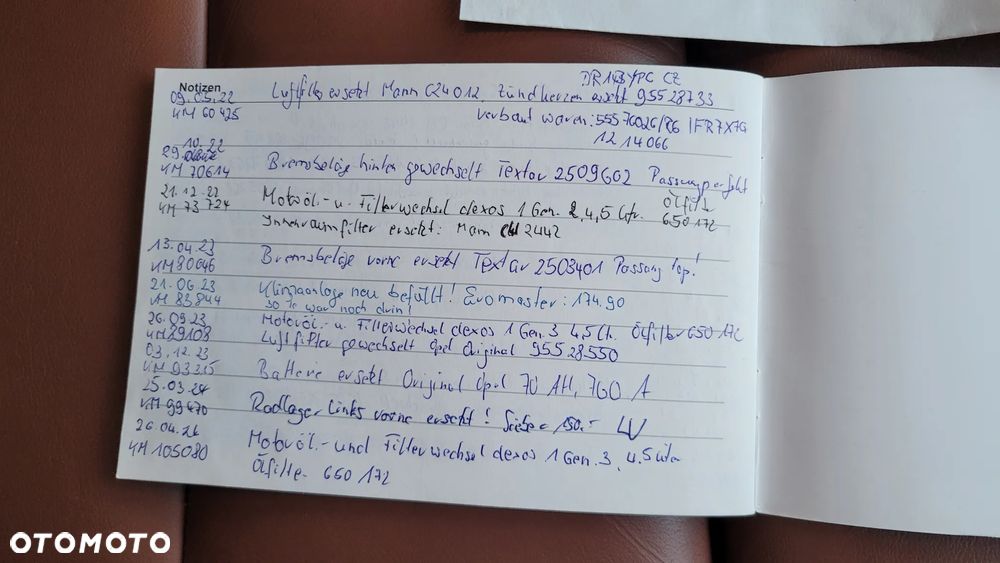 Notizen
09.05.22 Luftfilter ersetzt Mann C24012. Zündkerzen ersetzt 95528733
KM 60425 verbaut waren: 55576026/R6 IFR7X7G
12 14 066
29.10.22 Bremsbeläge hinten gewechselt Textar 2509602 Passung perfekt
KM 70614
21.12.22 Motoröl- u. Filterwechsel dexos 1 Gen. 2, 4,5 Ltr. Ölfilt
KM 73 724 650 172
Innenraumfilter ersetzt: Mann 2442
13.04.23 Bremsbeläge vorne ersetzt Textar 2503401 Passung top!
KM 80646
21.06.23 Klimaanlage neu befüllt! Euromaster: 174.90
KM 83844 war noch drin!
26.09.23 Motoröl- u. Filterwechsel dexos 1 Gen. 3 4,5 Ltr. Ölfilter 650 172
KM 89108 Luftfilter gewechselt Opel Original 95528550
03.12.23 Batterie ersetzt Original Opel 70 AH, 760 A
KM 93215
25.03.24 Radlager Links vorne ersetzt! 150.- LV
KM 99470
26.04.24 Motoröl- und Filterwechsel dexos 1 Gen. 3, 4,5
KM 105080 Ölfilter 650 172
OTOMOTO